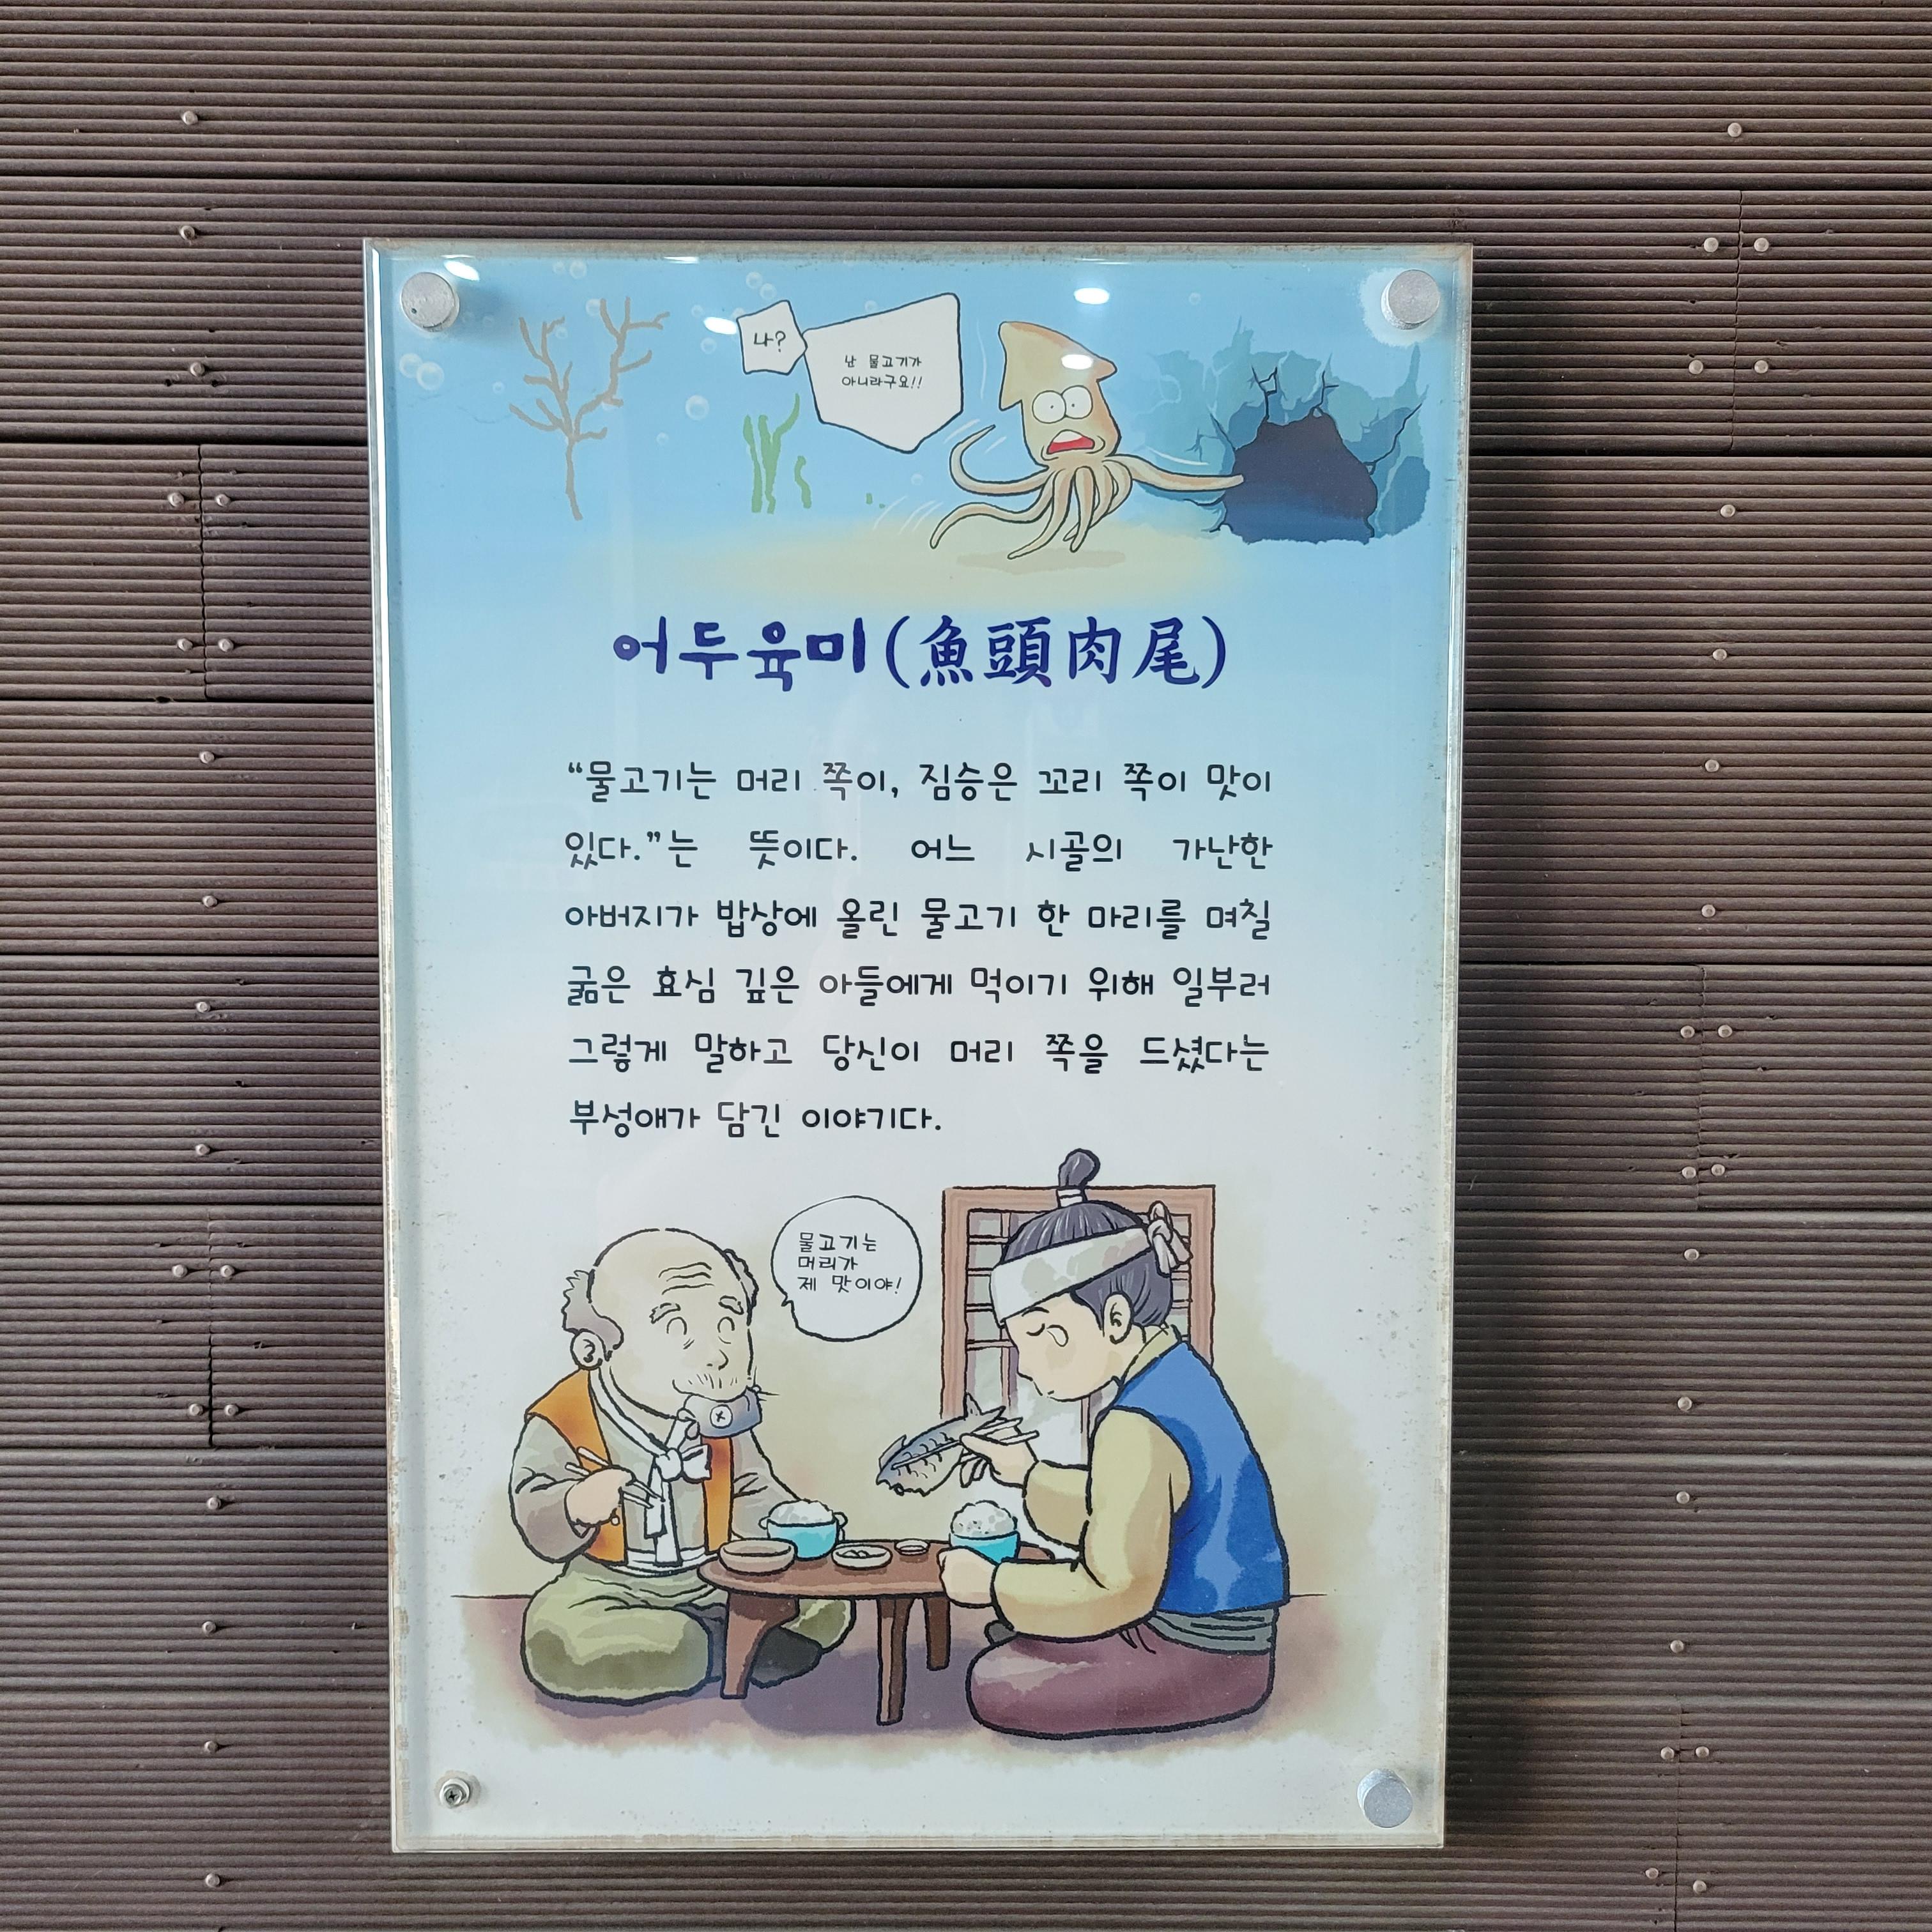 나?
난 물고기가
아니라구요!!
어두육미(魚頭肉尾)
“물고기는 머리 쪽이, 짐승은 꼬리 쪽이 맛이
있다.”는 뜻이다. 어느 시골의 가난한
아버지가 밥상에 올린 물고기 한 마리를 며칠
굶은 효심 깊은 아들에게 먹이기 위해 일부러
그렇게 말하고 당신이 머리 쪽을 드셨다는
부성애가 담긴 이야기다.
물고기는
머리가
제 맛이야!